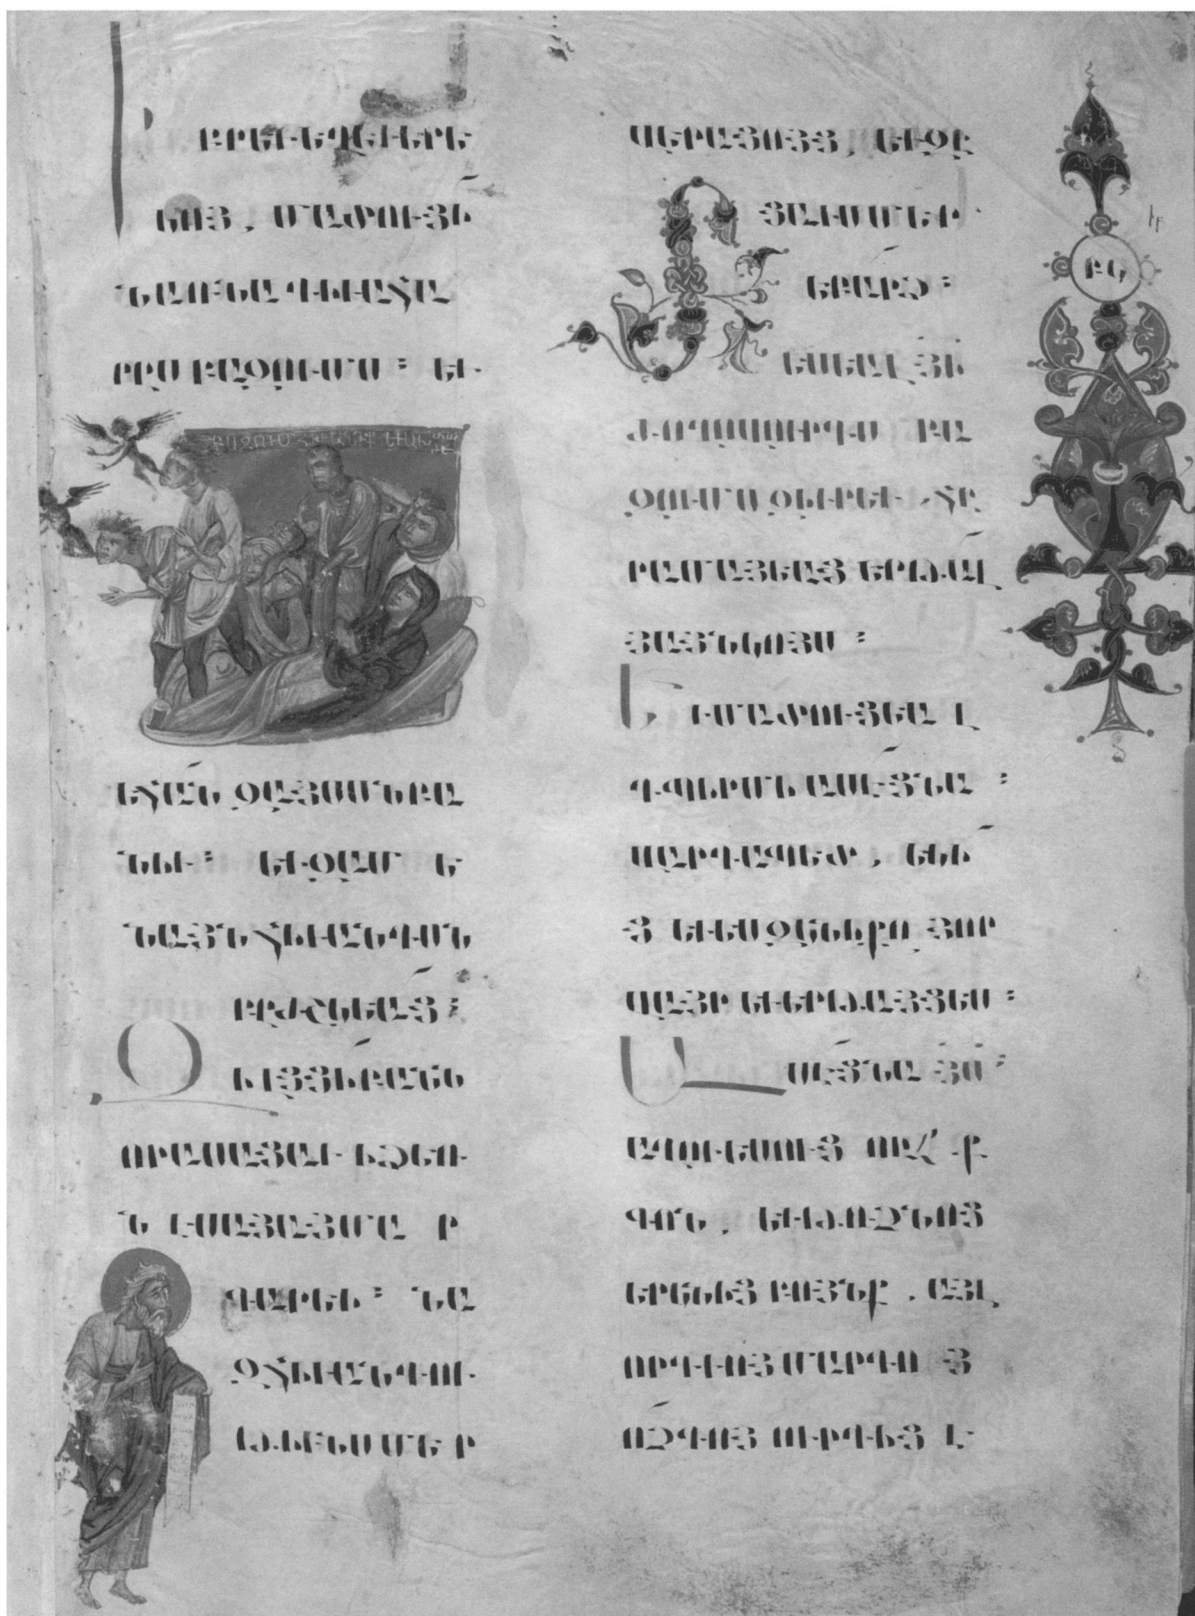 ԻԲՐԵՒԵՂԵՒԵՐԵ
ԿՈՅ . ՄԱՏՈՒՑԻ
ՆԱՌՆԱ ԴԻՒԱՀԱ
ՐՍ ԲԱԶՈՒՄՍ ։ ԵՒ
ԵՀԱՆ ԶԱՅՍՍՆԲԱ
ՆԻՒ ։ ԵՒԶԱՄԵ
ՆԱՅՆ ՀԻՒԱՆԴՍՆ
ԲԺՇԿԵԱՑ ։
ԶԻԼՑՑԻԲԱՆՆ
ՈՐԱՍԱՑԱՒ ԻՁԵՌ
Ն ԵՍԱՅԱՅՄԱ Ր
ԳԱՐԵԻ ։ ՆԱ
ԶՀԻՒԱՆԴՈՒ
ԹԻՒՆՍ ՄԵՐ
ՎԵՐԱՑՈՅՑ , ԵՒԶԸ
ՑԱՒՍ ՄԵՐ
ԵԲԱՐՁ ։
ՏԵՍԵԱԼ ՅԻ
ԺՈՂՈՎՈՒՐԴՍ ԲԱ
ԶՈՒՄՍ ԶԻՒՐԵՒ . ՀԸ
ՐԱՄԱՅԵԱՑ ԵՐԹԱԼ
ՅԱՅՆԿՈՅՍ ։
ԵՒՄԱՏՈՒՑԵԱԼ
ԴՊԻՐՄԻ ԱՍԷՑՆԱ ։
ՎԱՐԴԱՊԵՏ , ԵԿԻ
Ց ԵՒԵՍԶԿՆԻՔՈ ՅՈՐ
ՎԱՅՐ ԵՒԵՐԹԱՅՑԵՍ ։
ԱՍԷՑՆԱ ՅՍ ։
ԱՂՈՒԵՍՈՒՑ ՈՐՋ Ք
ԳՈՆ , ԵՒԹՌՉՆՈՑ
ԵՐԿՆԻՑ ԲՈՅՆՔ . ԱՅԼ
ՈՐԴՒՈՅ ՄԱՐԴՈ Յ
ՈՉԳՈՅ ՈՒՐԴԻՑ Է
ԲԳ